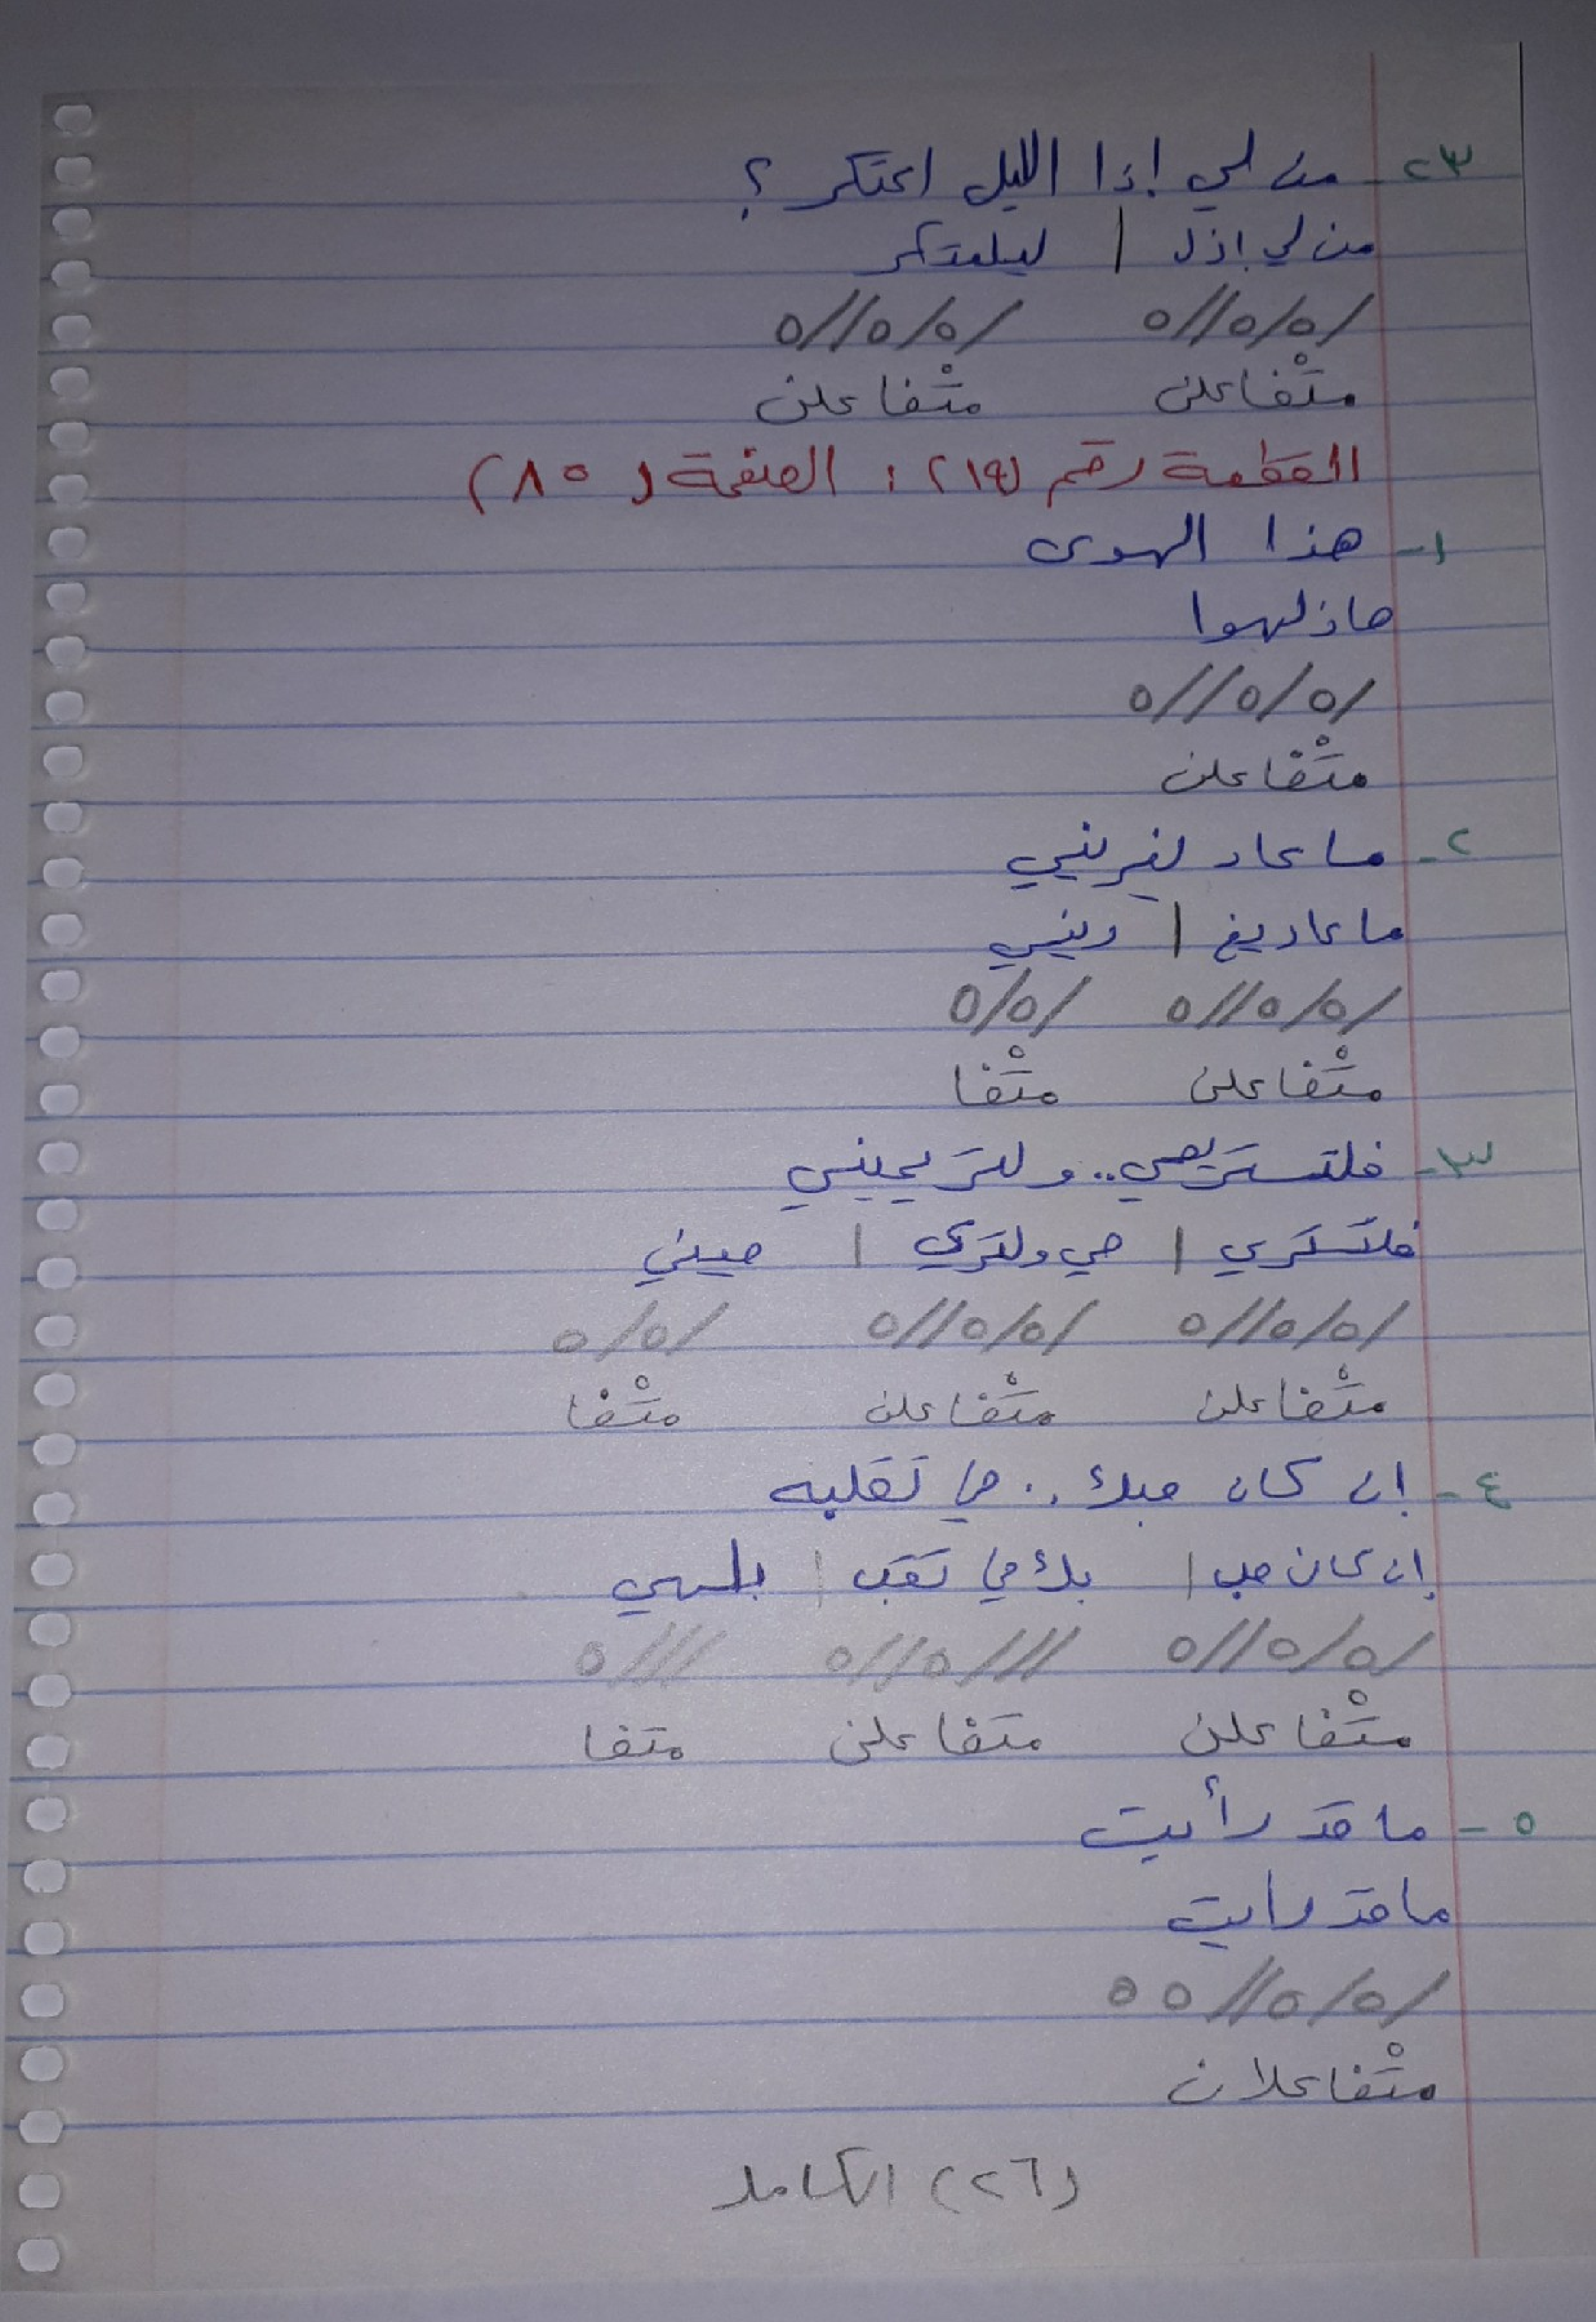 ٢٣- من لي إذا الليل اعتكر ؟
من لي إذل | ليلعتكر
/٥/٥//٥ /٥/٥//٥
متْفاعلن متْفاعلن
القطعة رقم (١٩): الصفحة (٨٥)
١- هذا الهوى
هاذلهوا
/٥/٥//٥
متْفاعلن
٢- ما عاد يغريني
ما عاد يغ | ريني
/٥/٥//٥ /٥/٥
متْفاعلن متْفا
٣- فلتستريحي.. ولتريحيني
فلتستري | حي ولتري | حيني
/٥/٥//٥ /٥/٥//٥ /٥/٥
متْفاعلن متْفاعلن متْفا
٤- إن كان حبك .. في تقلبه
إن كان حب | بك في تقل | لبهي
/٥/٥//٥ ///٥//٥ ///٥
متْفاعلن متفاعلن متفا
٥- ما قد رأيت
ما قد رايت
/٥/٥//٥٥
متْفاعلان
(٢٦) الكامل